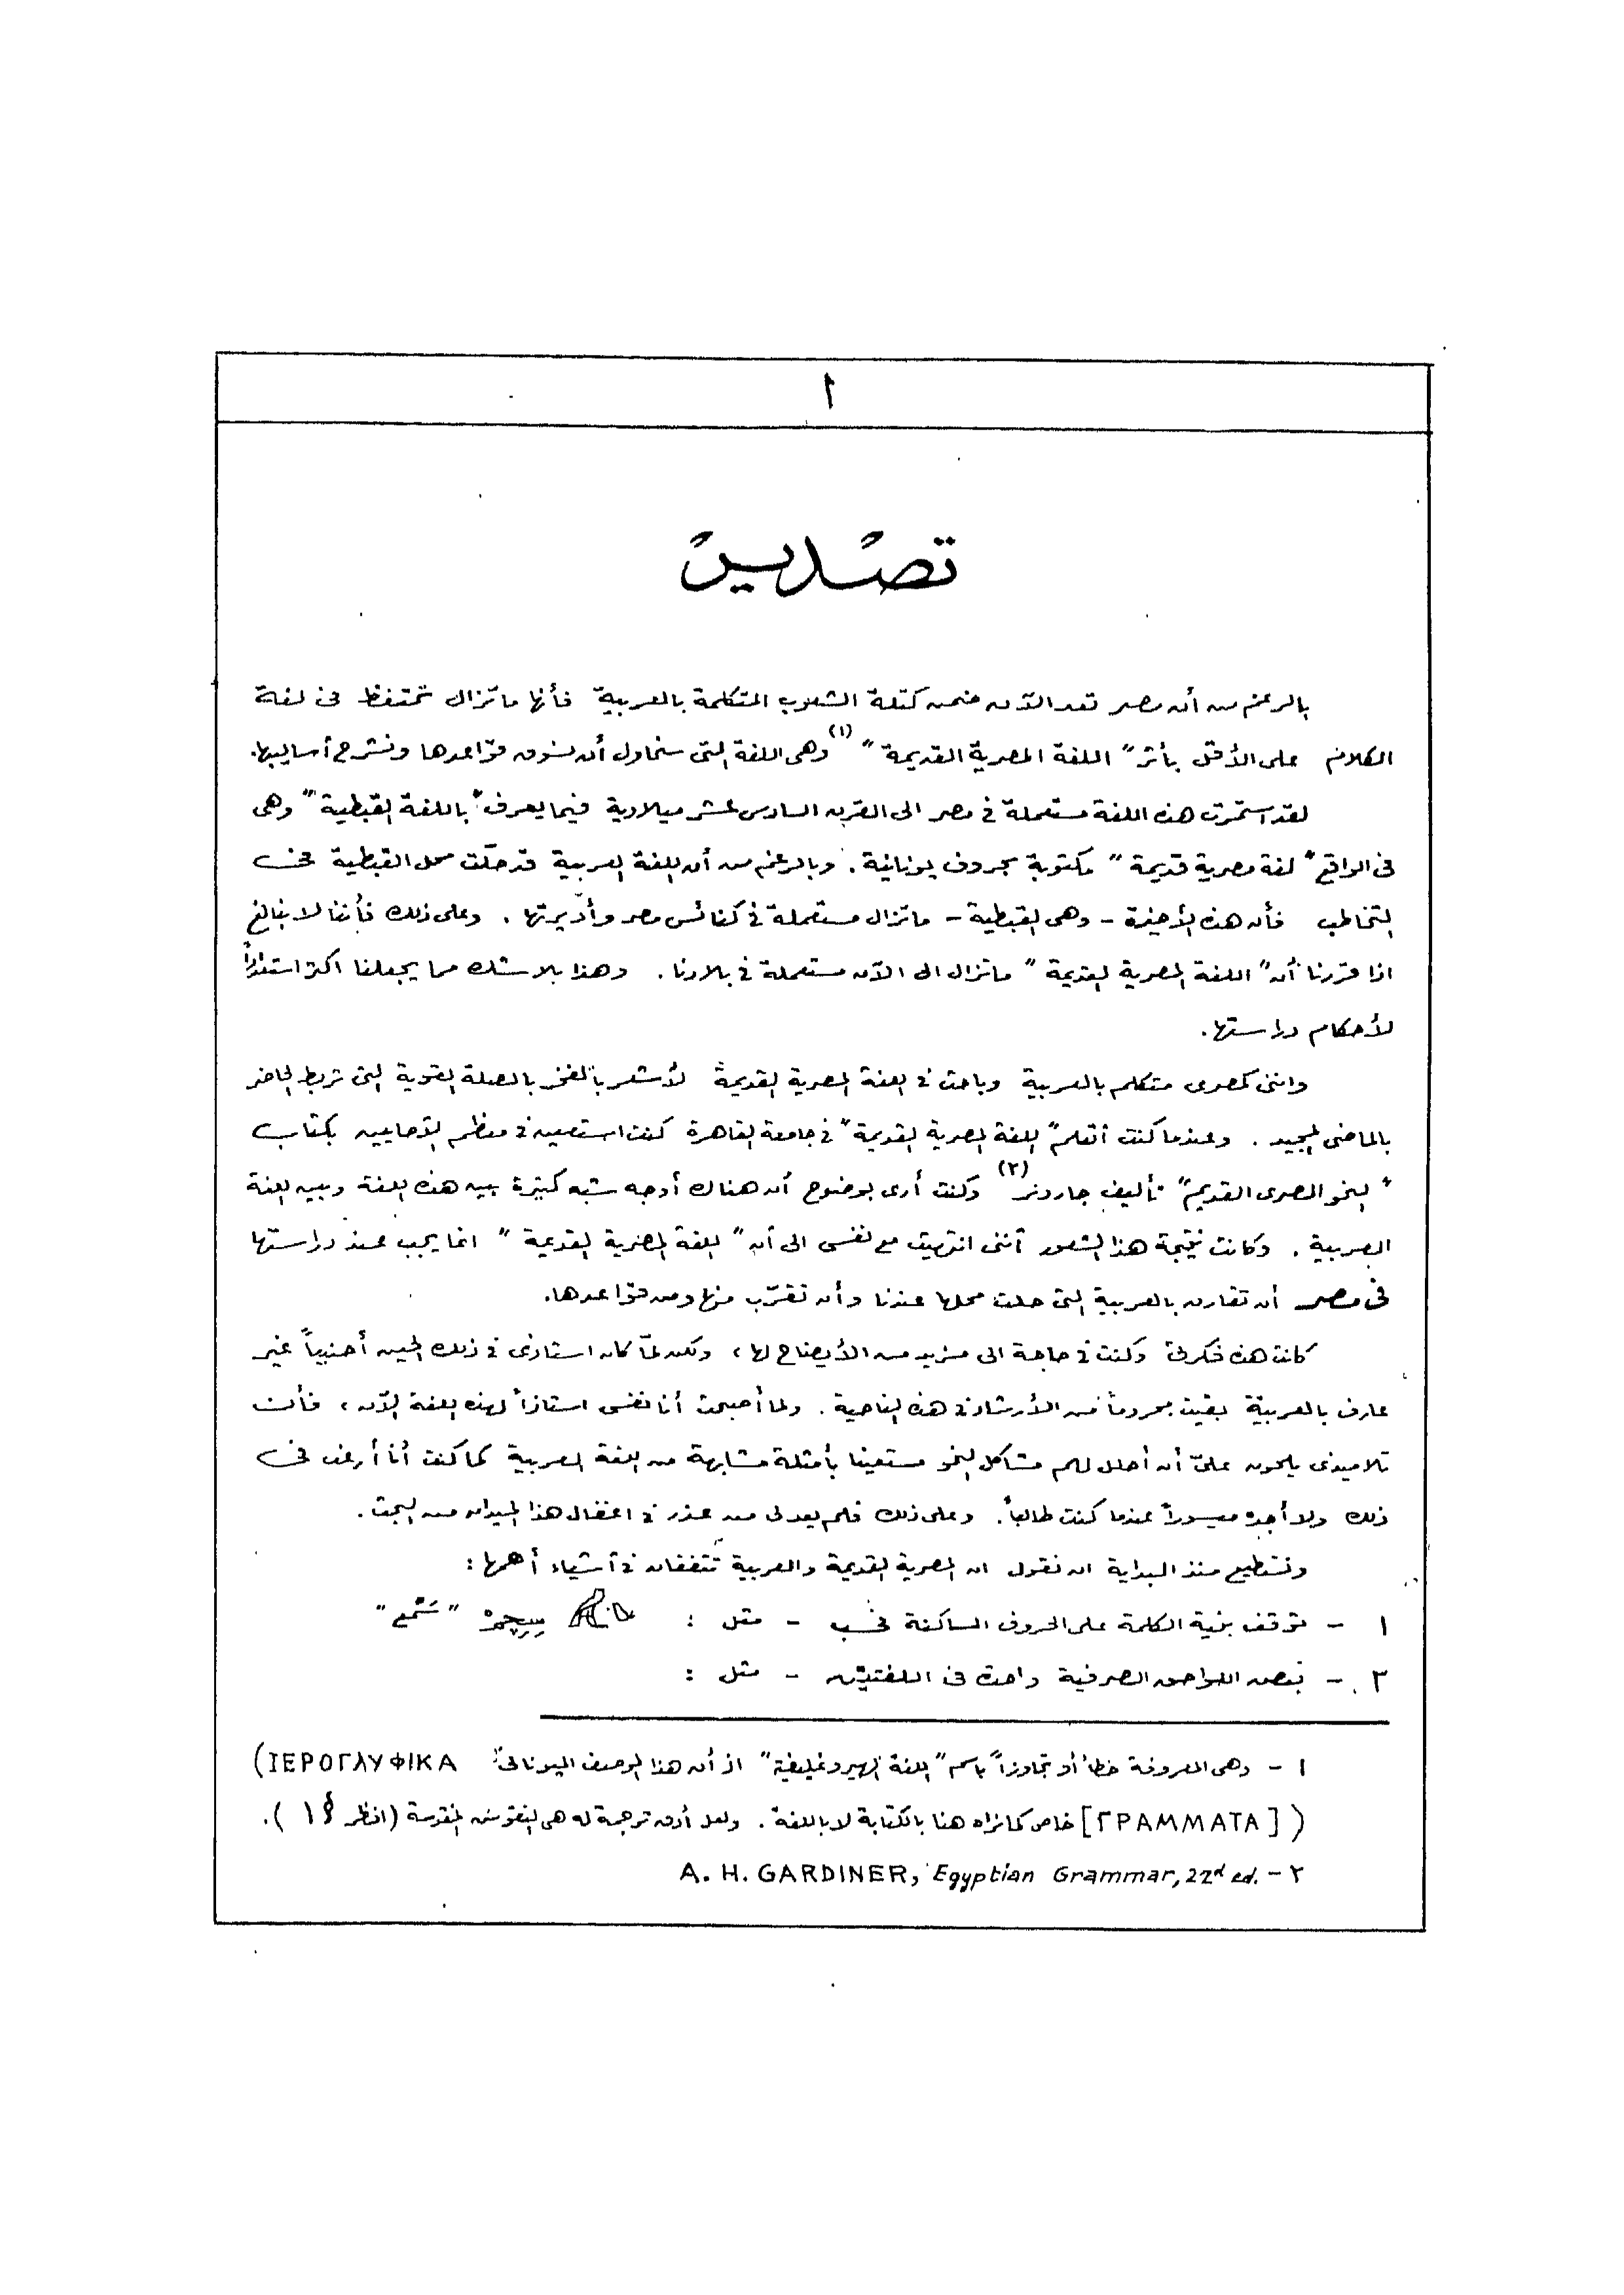 ١
تصدير
بالرغم من أن مصر تعد الآن ضمن كتلة الشعوب المتكلمة بالعربية فأنها ماتزال تحتفظ فى لغة
الكلام على الأقل بأثر " اللغة المصرية القديمة " (١) وهى اللغة التى سنحاول أن نسوق قواعدها ونشرح أساليبها.
لقد استمرت هذه اللغة مستعملة فى مصر الى القرن السادس عشر ميلادية فيما يعرف " باللغة القبطية " وهى
فى الواقع " لغة مصرية قديمة " مكتوبة بحروف يونانية . وبالرغم من أن اللغة العربية قد حلّت محل القبطية فى
التخاطب فأن هذه الأخيرة - وهى القبطية - ماتزال مستعملة فى كنائس مصر وأديرتها . وعلى ذلك فأننا لا نبالغ
اذا قررنا أن " اللغة المصرية القديمة " ماتزال الى الآن مستعملة فى بلادنا . وهذا بلا شك مما يجعلنا اكثر استعداداً
لأحكام دراستها .
وأننى كمصرى متكلم بالعربية وباحث فى اللغة المصرية القديمة لأشعر بالفخر بالصلة القوية التى تربط الحاضر
بالماضى المجيد . وعندما كنت أتعلم " اللغة المصرية القديمة " فى جامعة القاهرة كنت استعين فى معظم الأحايين بكتاب
" النحو المصرى القديم " تأليف جاردنر (٢) وكنت أرى بوضوح أن هناك أوجه شبه كثيرة بين هذه اللغة وبين اللغة
العربية . وكانت نتيجة هذا الشعور أننى انتهيت مع نفسى الى أن " اللغة المصرية القديمة " انما يجب عند دراستها
فى مصر أن تقارن بالعربية التى حلت محلها عندنا وأن تقرّب منها ومن قواعدها.
كانت هذه فكرتى وكنت فى حاجة الى مزيد من الأيضاح لها ، ولكن لمّا كان استاذى فى ذلك الحين أجنبياً غير
عارف بالعربية بقيت محروماً من الأرشاد فى هذه الناحية . ولما أصبحت أنا نفسى استاذاً لهذه اللغة الآن ، فأن
تلاميذى يلحون علىّ أن أحلل لهم مشاكل النحو مستعينا بأمثلة مشابهة من اللغة العربية كما كنت أنا أرغب فى
ذلك ولا أجده ميسوراً عندما كنت طالباً . وعلى ذلك فلم يعد لى من عذر فى اغفال هذا الميدان من البحث .
ونستطيع منذ البداية ان نقول ان المصرية القديمة والعربية تتفقان فى أشياء أهمها :
١ - توقف بنية الكلمة على الحروف الساكنة فحسب - مثل : "سَمْع"
٢ - بعض اللواحق الصرفية واحدة فى اللغتين - مثل :
١ - وهى المعروفة خطأ أو تجاوزاً باسم " اللغة الهيروغليفية " اذ أن هذا الوصف اليونانى (ΙΕΡΟΓΛΥΦΙΚΑ
([ΓΡΑΜΜΑΤΑ] خاص كما نراه هنا بالكتابة لا باللغة . ولعل أدق ترجمة له هى النقوش المقدسة (انظر § ١ ) .
٢ - A. H. GARDINER, Egyptian Grammar, 22d ed.